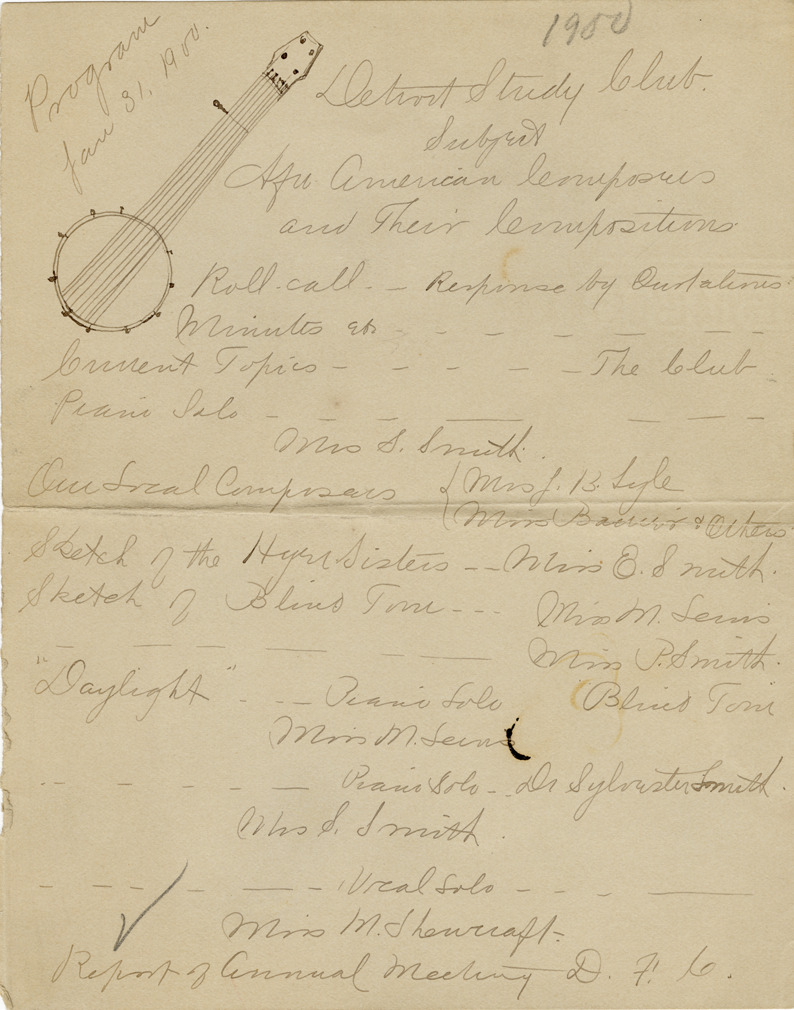 1900
Program
Jan 31, 1900.
Detroit Study Club.
Subject
Afro American Composers
and Their Compositions
Roll-call - Response by Quotations
Minutes etc - - - - - -
Current Topics - - - - - The Club
Piano Solo - - - - - - -
Mrs S. Smith.
Our Local Composers { Mrs J. B. Lyle
Miss & Others
Sketch of the Hyer Sisters -- Miss E. Smith.
Sketch of Blind Tom --- Miss M. Lewis
- - - - - Miss P. Smith.
"Daylight" - -- Piano Solo Blind Tom
Miss M. Lewis
-- - - - - Piano Solo -- Dr Sylvester Smith.
Mrs S. Smith.
- - - - - - Vocal Solo - - - -
Miss M. Shewcraft-
Report of Annual Meeting D. F. C.